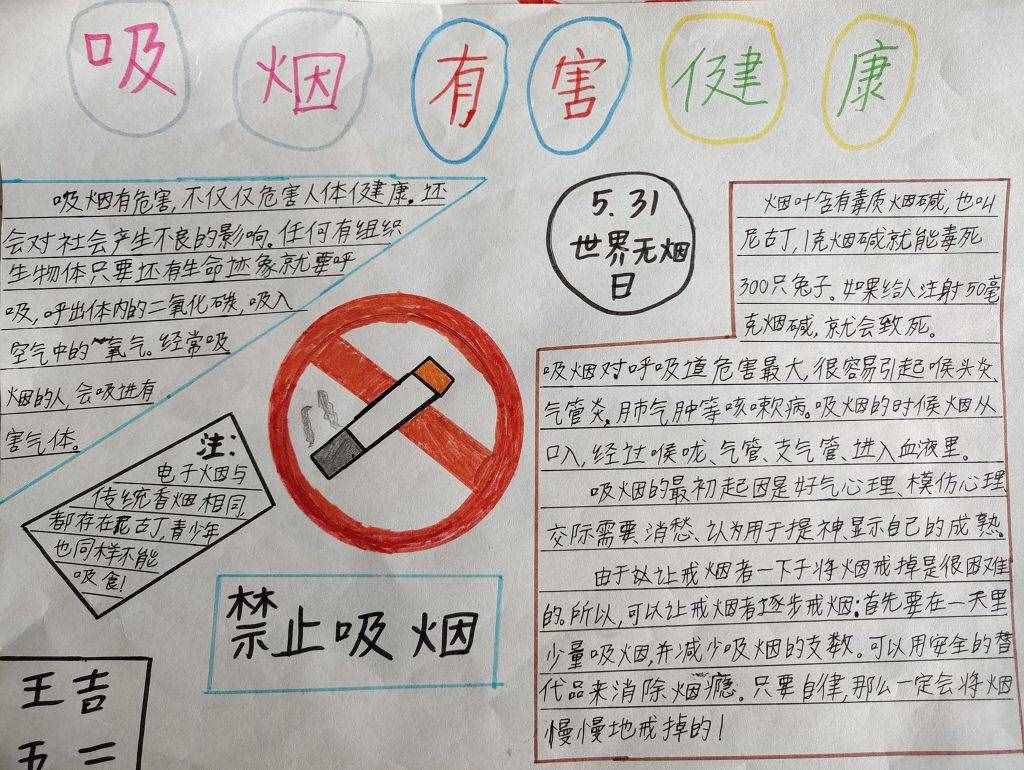 吸烟有害健康
吸烟有危害,不仅仅危害人体健康。还
会对社会产生不良的影响。任何有组织
生物体只要还有生命迹象就要呼
吸,呼出体内的二氧化碳,吸入
空气中的氧气。经常吸
烟的人,会吸进有
害气体。
注:
电子烟与
传统香烟相同,
都存在尼古丁,青少年
也同样不能
吸食!
禁止吸烟
王吉
五二
5.31
世界无烟
日
烟叶含有毒质烟碱,也叫
尼古丁,1克烟碱就能毒死
300只兔子。如果给人注射50毫
克烟碱,就会致死。
吸烟对呼吸道危害最大,很容易引起喉头炎、
气管炎,肺气肿等咳嗽病。吸烟的时候烟从
口入,经过喉咙、气管、支气管、进入血液里。
吸烟的最初起因是好气心理、模仿心理
交际需要、消愁、认为用于提神、显示自己的成熟。
由于放让戒烟者一下子将烟戒掉是很困难
的。所以,可以让戒烟者逐步戒烟:首先要在一天里
少量吸烟,并减少吸烟的支数。可以用安全的替
代品来消除烟瘾。只要自律,那么一定会将烟
慢慢地戒掉的!